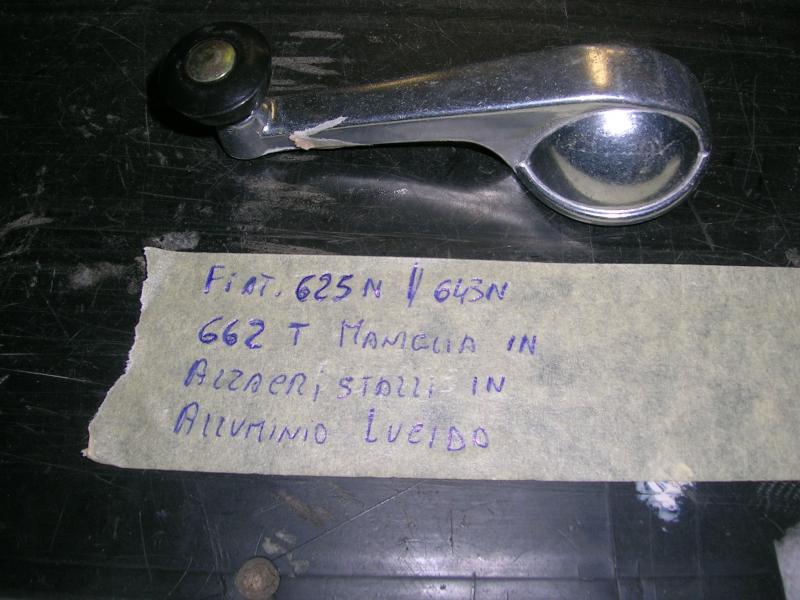 FIAT. 625N // 643N
662 T MANIGLIA IN
ALZACRISTALLI IN
ALLUMINIO LUCIDO